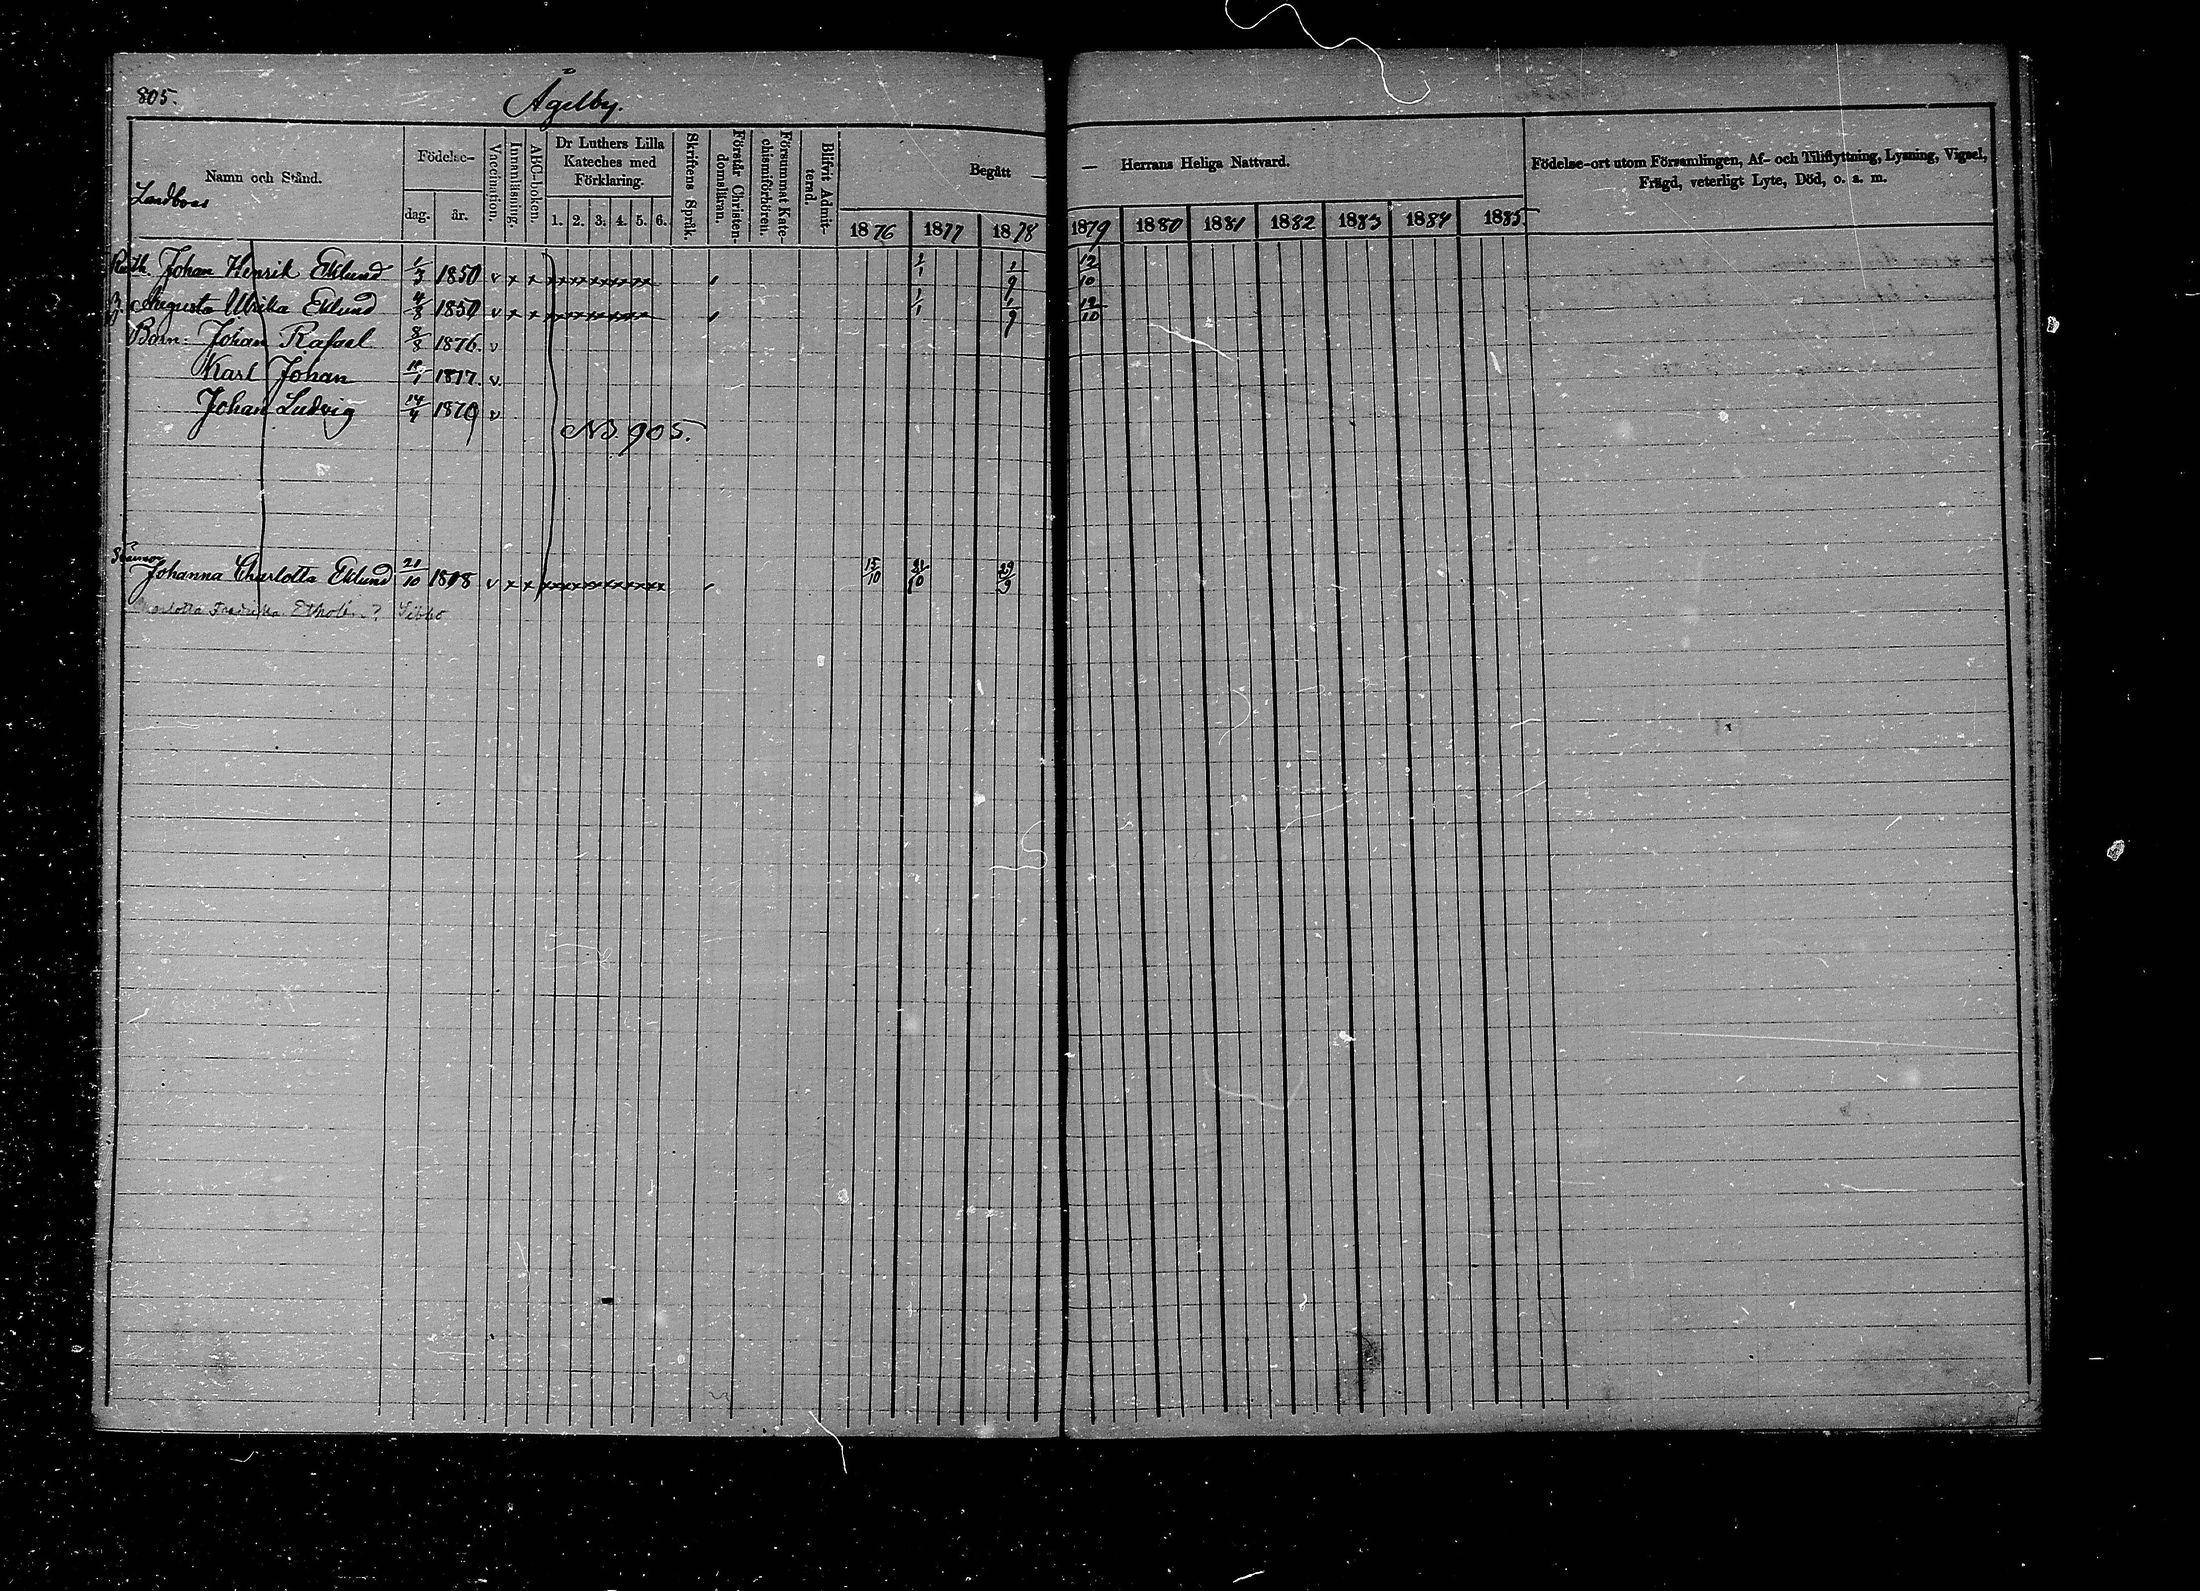 805.
Ågelby.
Namn och Stånd.
Landboes
Födelse-
dag.
år.
Vaccination.
Innanläsning.
ABC-boken.
Dr Luthers Lilla
Kateches med
Förklaring.
1. 2. 3. 4. 5. 6.
Skriftens Språk.
Förstår Christen-
domsläran.
Försummat Kate-
chismiförhören.
Blifvit Admit-
terad.
Begått —
— Herrans Heliga Nattvard.
1876 1877 1878
1879 1880 1881 1882 1883 1884 1885
Födelse-ort utom Församlingen, Af- och Tillflyttning, Lysning, Vigsel,
Frägd, veterligt Lyte, Död, o. s. m.
Johan Henrik Eklund 1/3 1850 v x x xxxxxxxxxx 1/1 1/9 12/10
Augusta Ulrika Eklund 4/3 1850 v x x xxxxxxxxxx 1/1 1/9 12/10
Barn: Johan Rafael 8/8 1876. v
Karl Johan 1877. v
Johan Ludvig 14/4 1879 v
NB. 905.
Johanna Charlotta Eklund 21/10 1808 v x x xxxxxxxxxxx 15/10 21/10 29/9
Charlotta Fredrika ? Sibbo